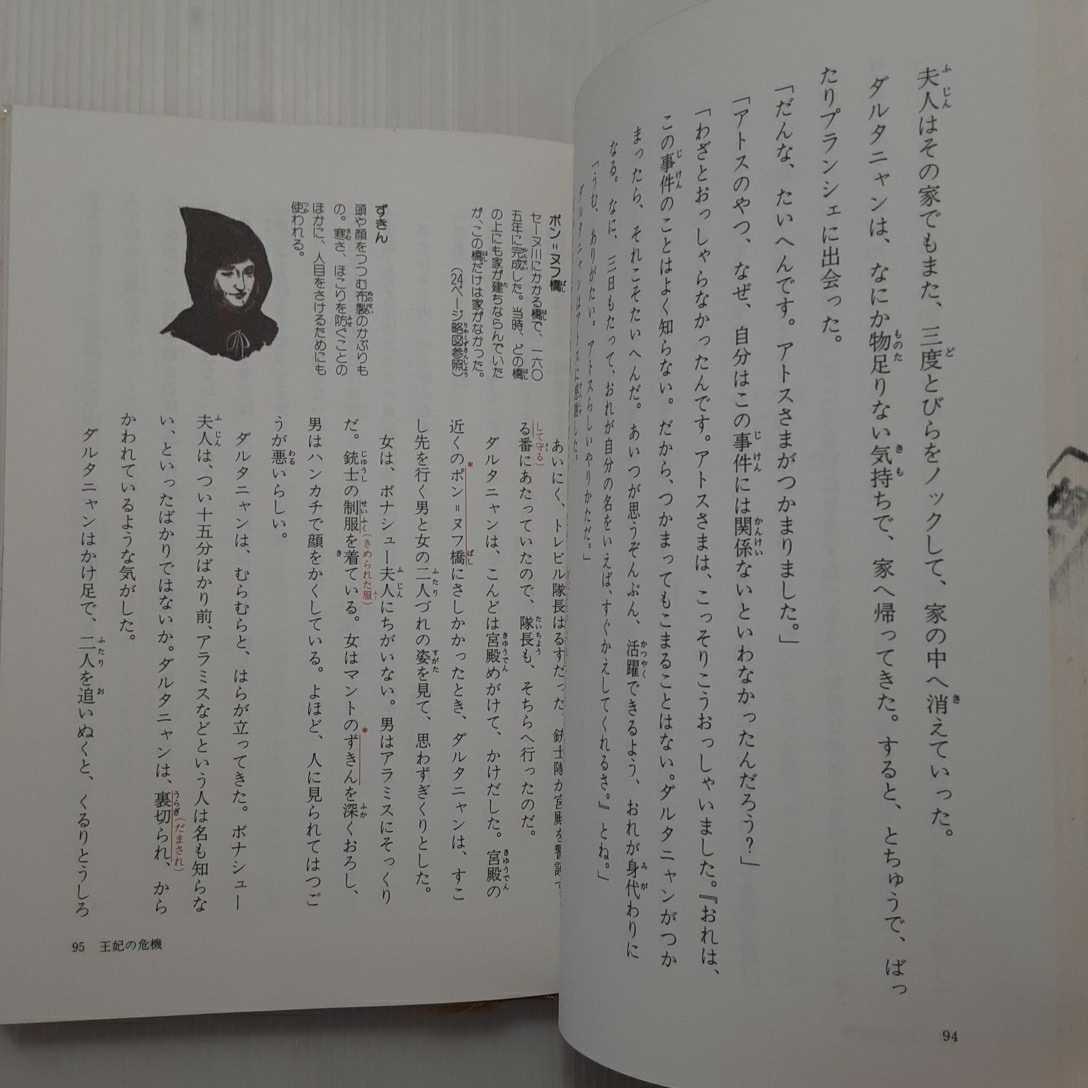 夫人はその家でもまた、三度とびらをノックして、家の中へ消えていった。
ダルタニャンは、なにか物足りない気持ちで、家へ帰ってきた。すると、とちゅうで、ばっ
たりプランシェに出会った。
「だんな、たいへんです。アトスさまがつかまりました。」
「アトスのやつ、なぜ、自分はこの事件には関係ないといわなかったんだろう？」
「わざとおっしゃらなかったんです。アトスさまは、こっそりこうおっしゃいました。『おれは、
この事件のことはよく知らない。だから、つかまってもこまることはない。ダルタニャンがつか
まったら、それこそたいへんだ。あいつが思うぞんぶん、活躍できるよう、おれが身代わりに
なる。なに、三日もたって、おれが自分の名をいえば、すぐかえしてくれるさ。』とね。」
「うむ、ありがたい。アトスらしいやりかただ。」
ダルタニャンはアトスに感謝した。
94
あいにく、トレビル隊長はるすだった。銃士隊が宮殿を警護
して守る
る番にあたっていたので、隊長も、そちらへ行ったのだ。
ダルタニャンは、こんどは宮殿めがけて、かけだした。宮殿の
近くのポン＝ヌフ橋にさしかかったとき、ダルタニャンは、すこ
し先を行く男と女の二人づれの姿を見て、思わずぎくりとした。
女は、ボナシュー夫人にちがいない。男はアラミスにそっくり
だ。銃士の制服(きめられた服)を着ている。女はマントのずきんを深くおろし、
男はハンカチで顔をかくしている。よほど、人に見られてはつご
うが悪いらしい。
ダルタニャンは、むらむらと、はらが立ってきた。ボナシュー
夫人は、つい十五分ばかり前、アラミスなどという人は名も知らな
い、といったばかりではないか。ダルタニャンは、裏切られ(だまされ)、から
かわれているような気がした。
ダルタニャンはかけ足で、二人を追いぬくと、くるりとうしろ
ポン＝ヌフ橋
セーヌ川にかかる橋で、一六〇
五年に完成した。当時、どの橋
の上にも家が建ちならんでいた
が、この橋だけは家がなかった。
(24ページ略図参照)
ずきん
頭や顔をつつむ布製のかぶりも
の。寒さ、ほこりを防ぐことの
ほかに、人目をさけるためにも
使われる。
95 王妃の危機